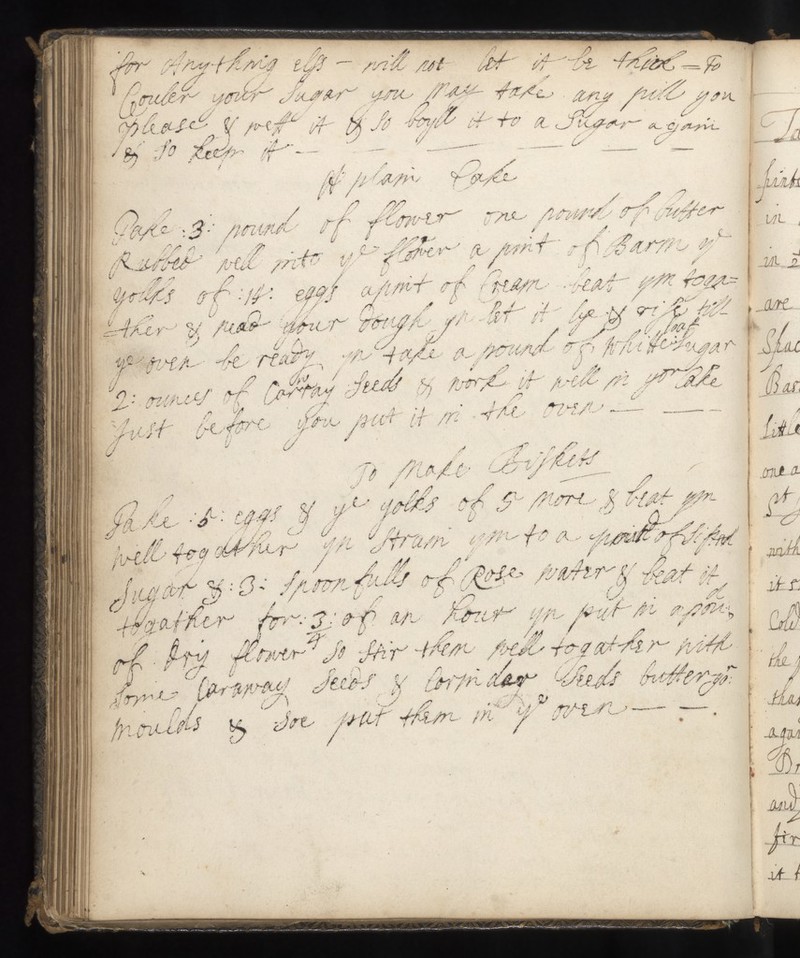 for Anything elss - will not let it be thick = To
Couler your Sugar you May take any pill you
Please & wett it & So boyll it to a Sugar again
& So keep it
A plain Cake
Take :3: pound of flower one pound of butter
Rubbed well into ye flower a pint of Barm ye
yolks of :14: eggs a pint of Cream beat ym toga=
=ther & mad your dough yn let it lye & rise till
ye oven be ready yn take a pound of white Sugar
2: ounces of Carway Seeds & work it well in yor Cake
Just before you put it in the oven
To Make Biskets
Take :5: eggs & ye yolks of 5 More & beat ym
well togather yn Strain ym to a pound of Sifted
Sugar & :3: Spoonfulls of Rose water & beat it
togather for :3/4: of an hour yn put in a pound
of dry flower So Stir them well togather with
Some Caraway Seeds & Seeds butter yor
Moulds & Soe put them in ye oven
in
in
are
Spac
Bar
Little
one a
with
Cold
the
than
agai
Br
and
fir
it